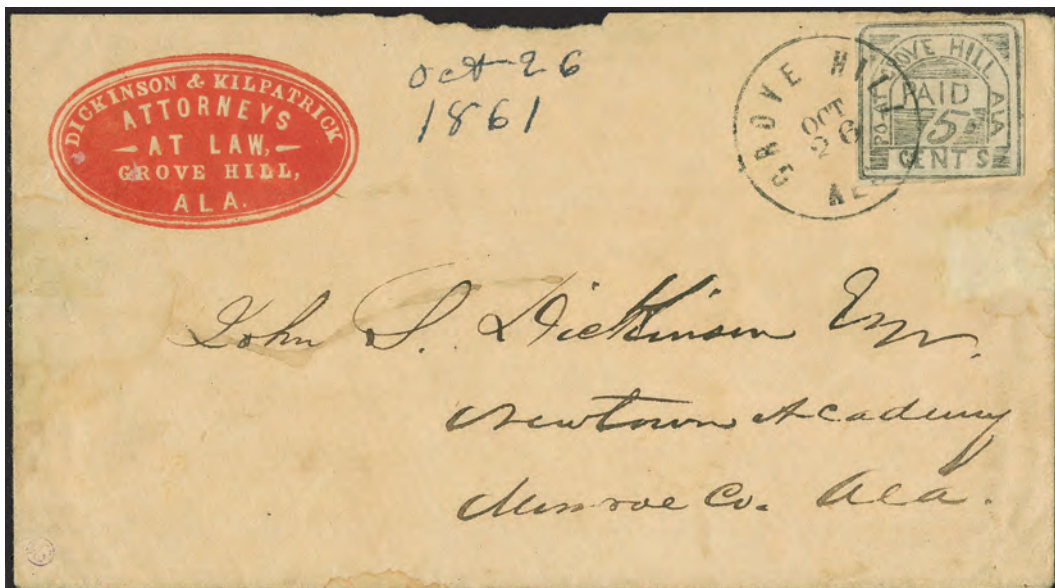 DICKINSON & KILPATRICK
ATTORNEYS
AT LAW,
GROVE HILL,
ALA.
Oct 26
1861
GROVE HILL
OCT
26
ALA
PO-AT GROVE HILL ALA
PAID
5
CENTS
John S. Dickinson Esqr.
Newtown Academy
Munroe Co. Ala.